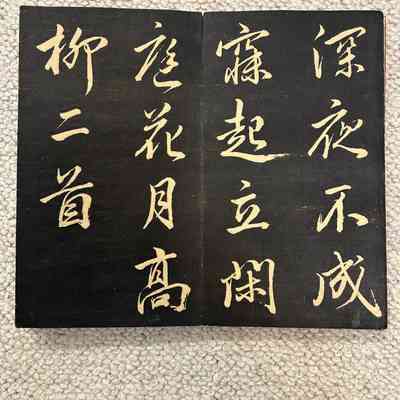 深夜不成
寐起立閑
庭花月高
柳二首